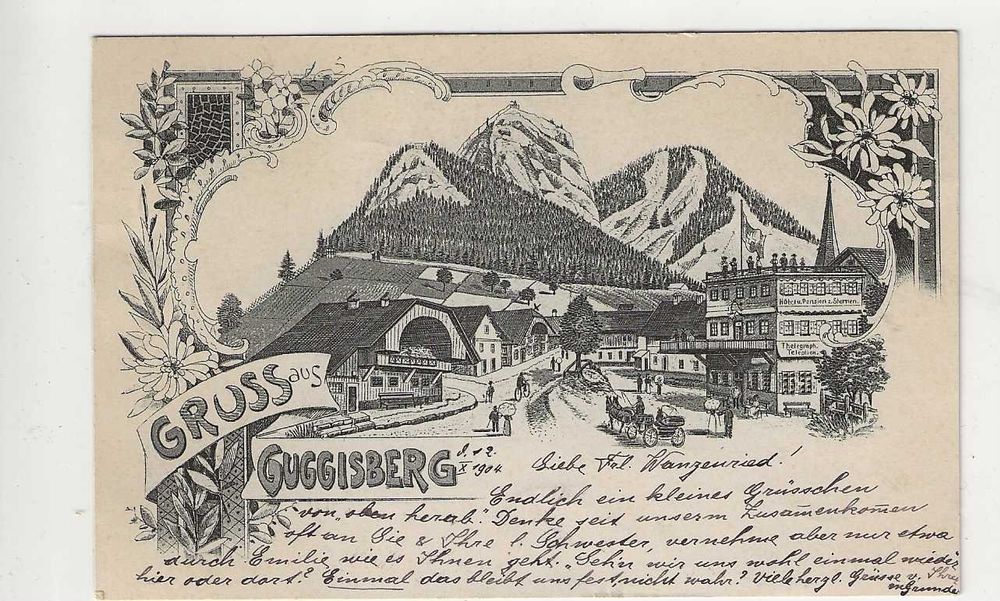 GRUSS aus
GUGGISBERG
Hôtel u. Pension z. Sternen.
Thelegraph.
Telephon.
d. 12.
X 1904.
Liebe Frl. Wangenried!
Endlich ein kleines Grüsschen
von "oben herab". Denke seit unserm Zusammenkommen
oft an Sie & Ihre l. Schwester, vernehme aber nur etwa
durch Emilie wie es Ihnen geht. "Sehn wir uns wohl einmal wieder
hier oder dort?" Einmal das bleibt uns fest nicht wahr? Viele herzl. Grüsse v. Ihrer